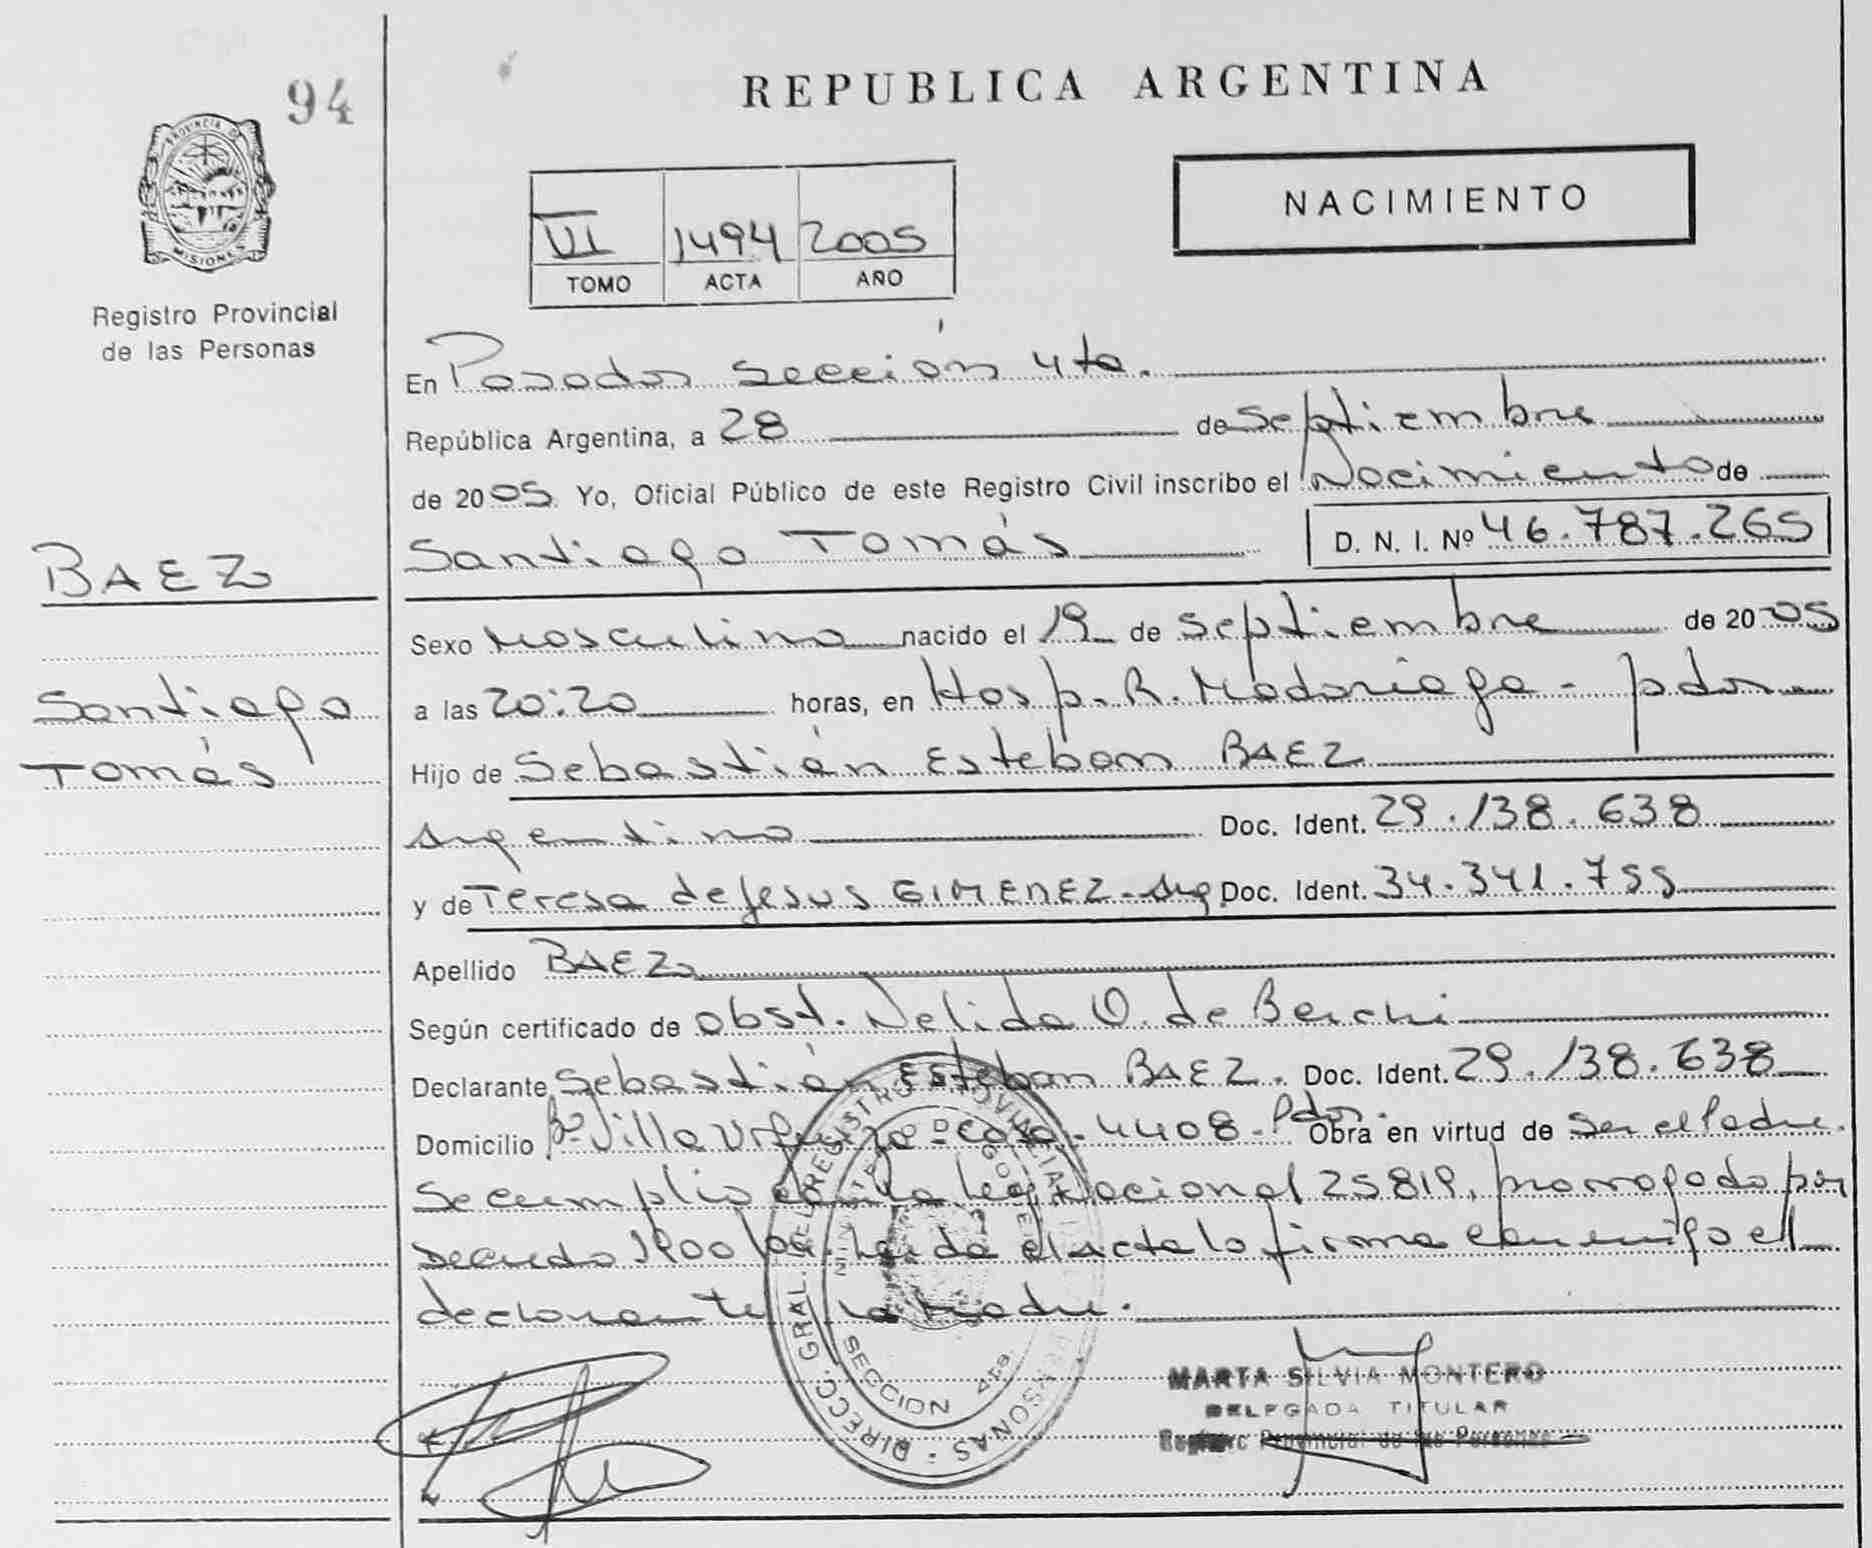 94
PROVINCIA DE
MISIONES
Registro Provincial
de las Personas
REPUBLICA ARGENTINA
NACIMIENTO
VI 1494 2005
TOMO ACTA AÑO
En Posadas sección 4ta.
República Argentina, a 28 de Septiembre
de 2005 Yo, Oficial Público de este Registro Civil inscribo el Nacimiento de
Santiago Tomás D. N. I. Nº 46.787.265
BAEZ
Santiago
Tomás
Sexo Masculino nacido el 19 de Septiembre de 2005
a las 20:20 horas, en Hosp. R. Madariaga - pdas
Hijo de Sebastián Esteban BAEZ
Argentino Doc. Ident. 29.138.638
y de Teresa de Jesus GIMENEZ - Arg. Doc. Ident. 34.341.755
Apellido BAEZ
Según certificado de obst. Nelida O. de Berchi
Declarante Sebastián Esteban BAEZ. Doc. Ident. 29.138.638
Domicilio Bº Villa Urquiza - casa - 4408 - Pdas. Obra en virtud de Ser el Padre.
Se cumplio con la ley Nacional 25819, prorrogado por
Decreto 1900 Leida el acta la firma conmigo el
declarante la Madre.
DIRECC. GRAL. DEL REGISTRO PROVINCIAL PERSONAS
SECCION 4ta.
MARTA SILVIA MONTERO
DELEGADA TITULAR
Registro Provincial de las Personas